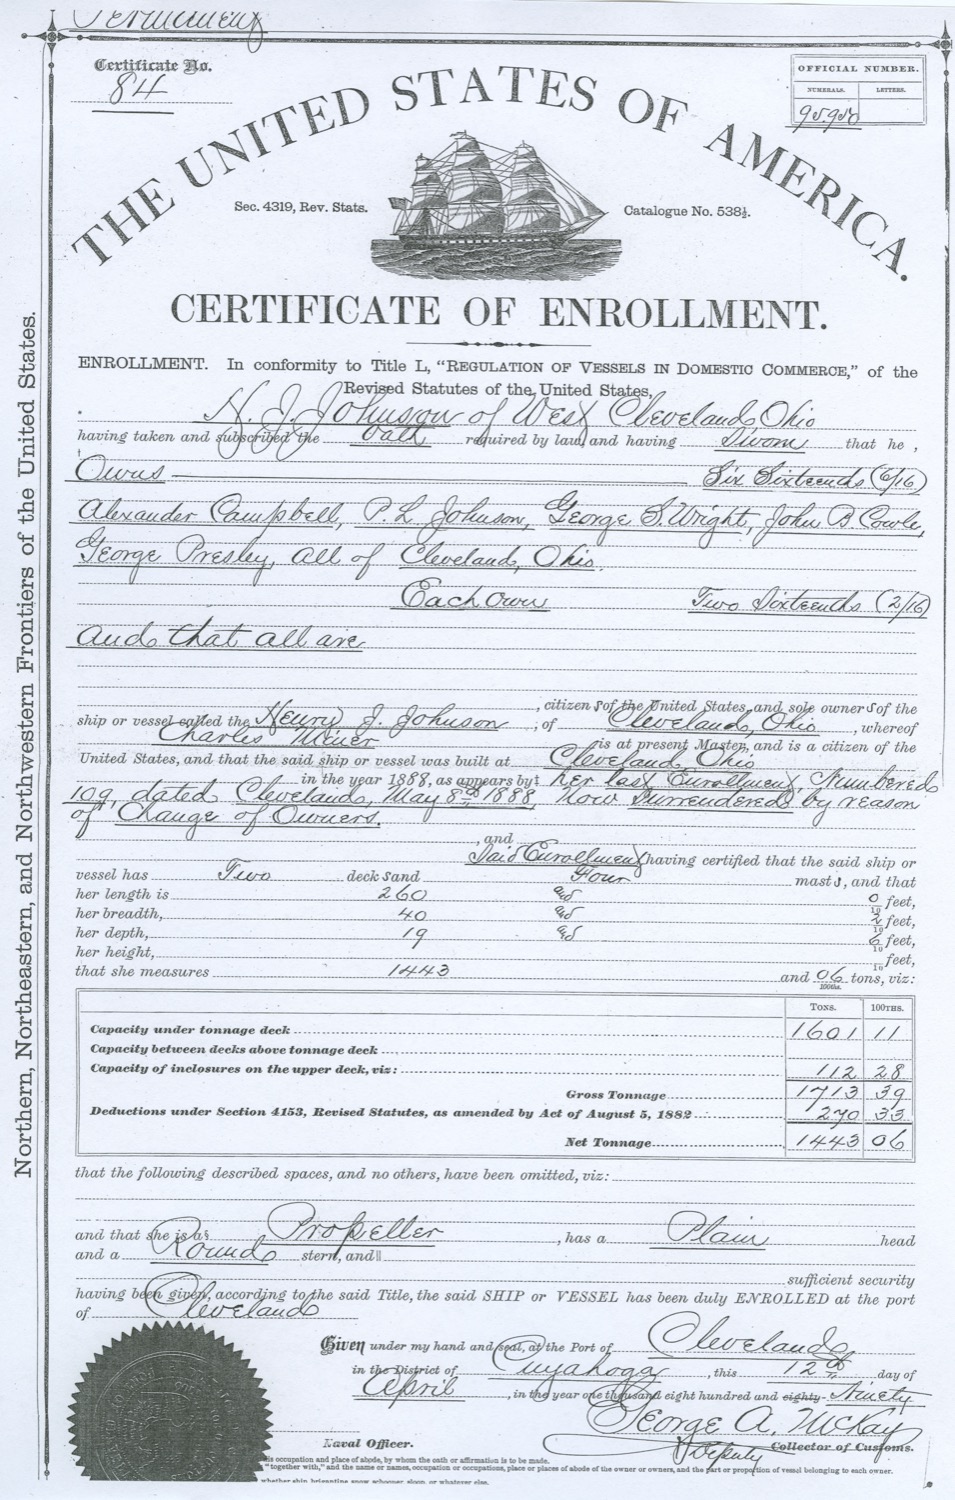 Permanent
Certificate No.
84
OFFICIAL NUMBER.
NUMERALS. LETTERS.
95.950
THE UNITED STATES OF AMERICA.
Sec. 4319, Rev. Stats. Catalogue No. 538½.
CERTIFICATE OF ENROLLMENT.
Northern, Northeastern, and Northwestern Frontiers of the United States.
ENROLLMENT. In conformity to Title L, "REGULATION OF VESSELS IN DOMESTIC COMMERCE," of the
Revised Statutes of the United States,
H. J. Johnson of West Cleveland, Ohio
having taken and subscribed the Oath required by law, and having Sworn that he,
Owns Six Sixteenths (6/16)
Alexander Campbell, P. L. Johnson, George S. Wright, John B Cowle,
George Presley, all of Cleveland, Ohio.
Each Own Two Sixteenths (2/16)
And that all are
, citizens of the United States, and sole owners of the
ship or vessel called the Henry J. Johnson, of Cleveland, Ohio, whereof
Charles Miner is at present Master, and is a citizen of the
United States, and that the said ship or vessel was built at Cleveland, Ohio
in the year 1888, as appears by her last Enrollment, Numbered
109, dated Cleveland, May 8th 1888, Now Surrendered by reason
of Change of Owners.
, and
Said Enrollment having certified that the said ship or
vessel has Two decks and Four masts, and that
her length is 260 and 0/10 feet,
her breadth, 40 and 2/10 feet,
her depth, 19 and 6/10 feet,
her height, /10 feet,
that she measures 1443 and 06/100ths. tons, viz:
TONS. 100THS.
Capacity under tonnage deck 1601 11
Capacity between decks above tonnage deck
Capacity of inclosures on the upper deck, viz: 112 28
Gross Tonnage 1713 39
Deductions under Section 4153, Revised Statutes, as amended by Act of August 5, 1882 270 33
Net Tonnage 1443 06
that the following described spaces, and no others, have been omitted, viz:
and that she is a Propeller, has a Plain head
and a Round stern, and
sufficient security
having been given, according to the said Title, the said SHIP or VESSEL has been duly ENROLLED at the port
of Cleveland
Given under my hand and seal, at the Port of Cleveland
in the District of Cuyahoga, this 12th day of
April, in the year one thousand eight hundred and eighty- Ninety
George A. McKay
Naval Officer. Deputy Collector of Customs.
his occupation and place of abode, by whom the oath or affirmation is to be made.
"together with," and the name or names, occupation or occupations, place or places of abode of the owner or owners, and the part or proportion of vessel belonging to each owner.